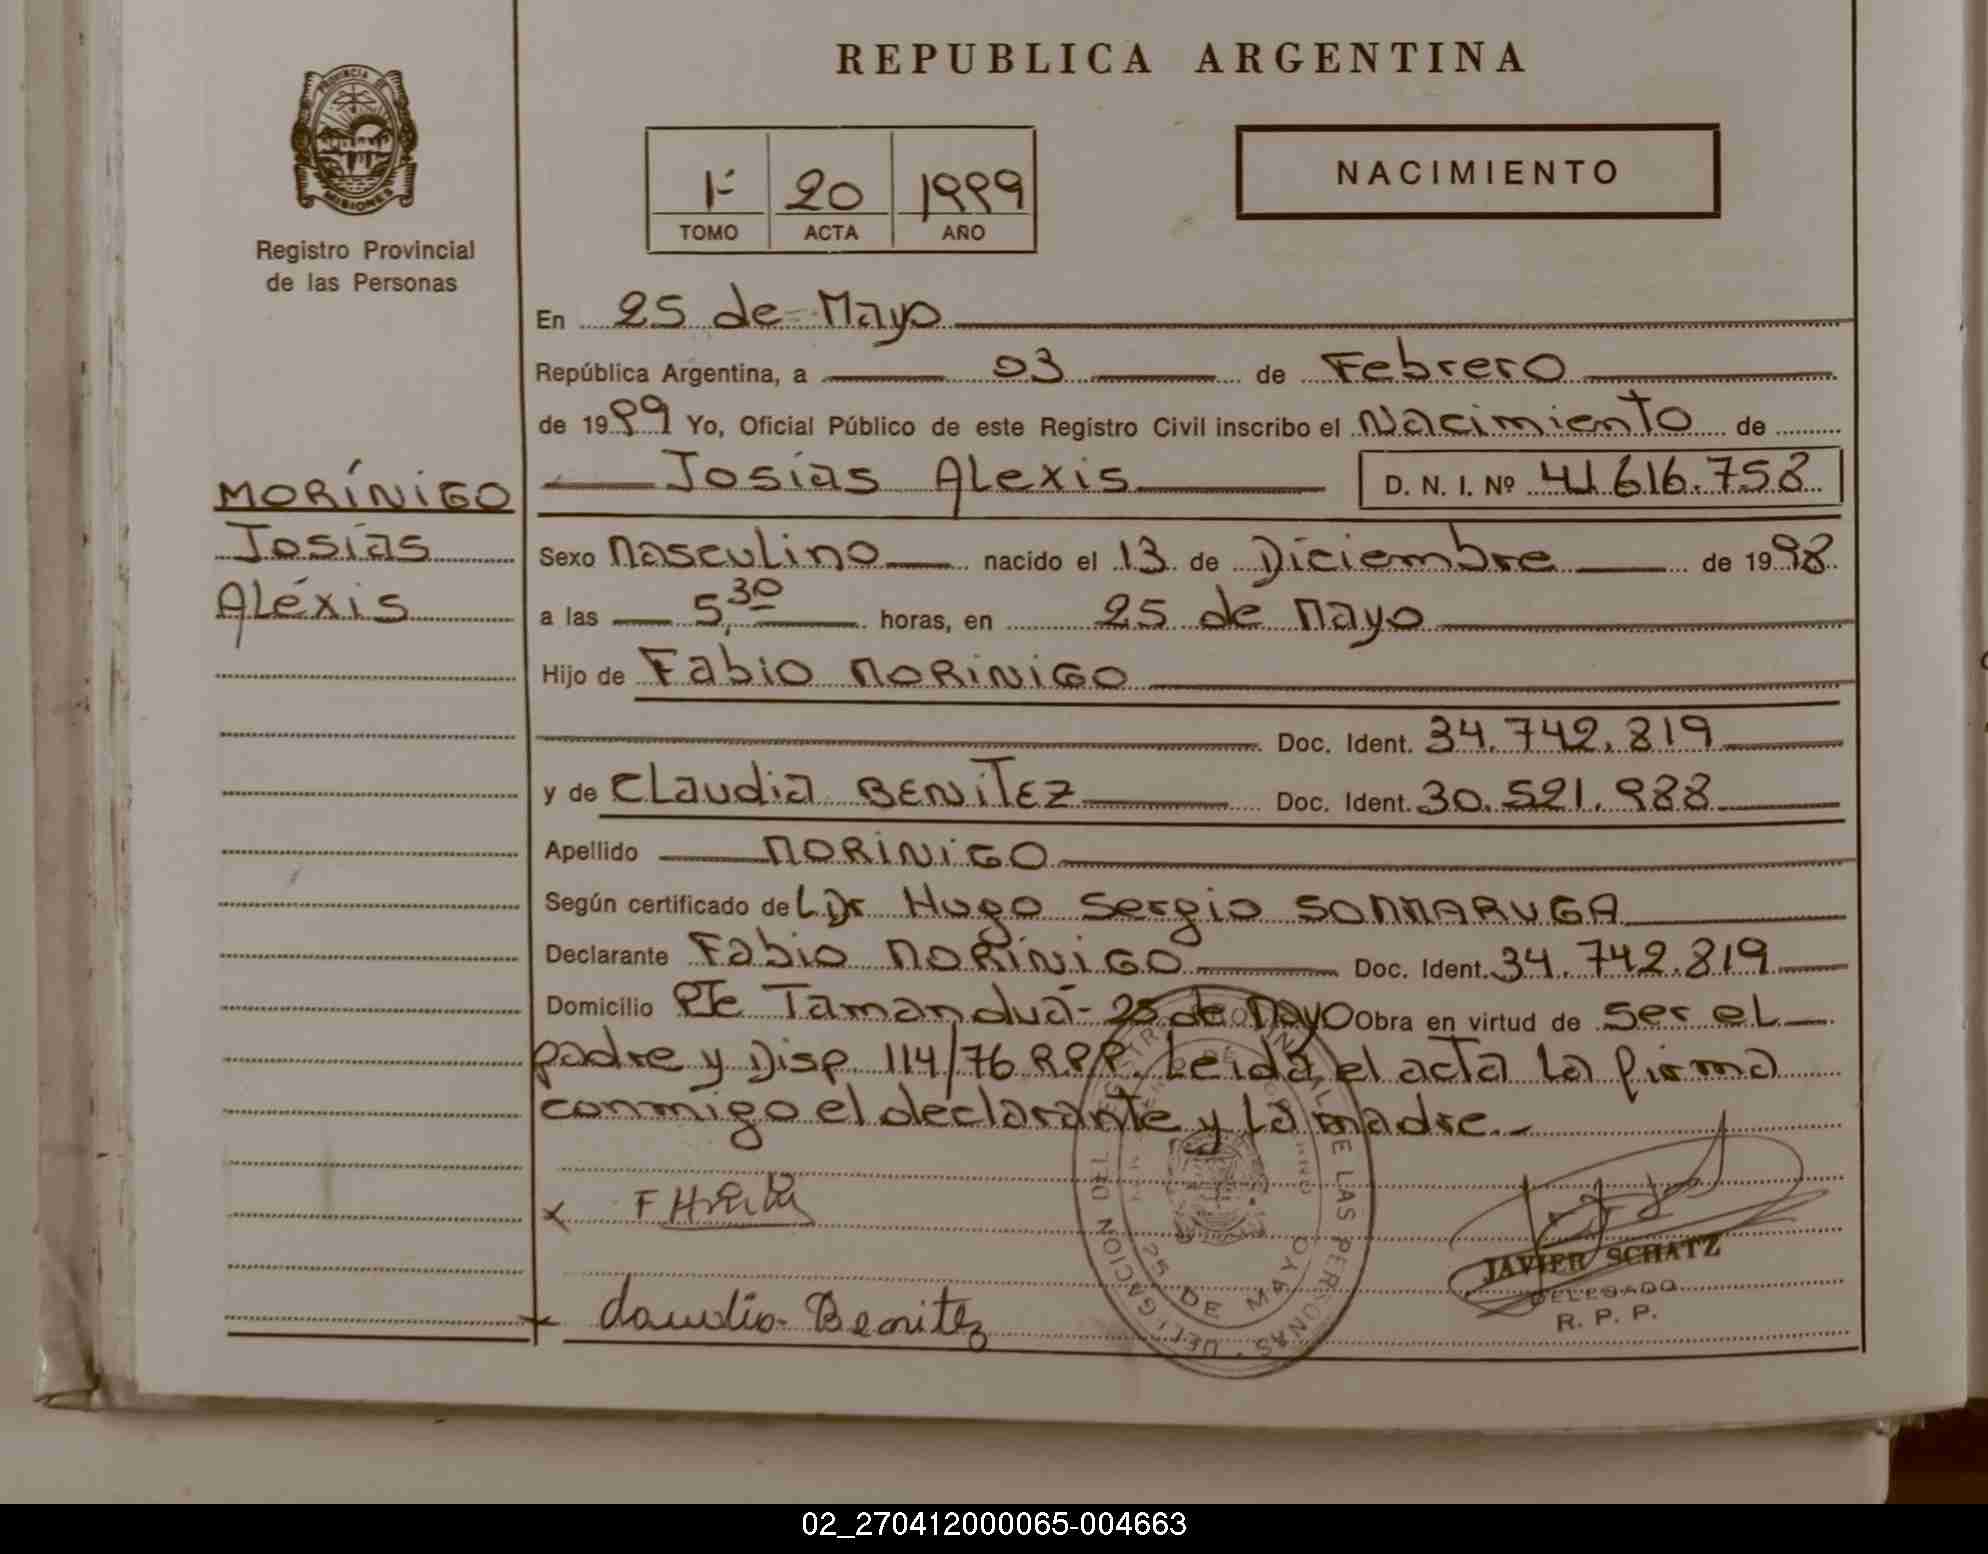 REPUBLICA ARGENTINA
PROVINCIA DE
MISIONES
Registro Provincial
de las Personas
1º 20 1999
TOMO ACTA AÑO
NACIMIENTO
En 25 de Mayo
República Argentina, a 03 de Febrero
de 1999 Yo, Oficial Público de este Registro Civil inscribo el Nacimiento de
Josías Alexis D. N. I. Nº 41.616.758
MORÍNIGO
Josías
Aléxis
Sexo Masculino nacido el 13 de Diciembre de 1998
a las 5,30 horas, en 25 de Mayo
Hijo de Fabio MORINIGO
Doc. Ident. 34.742.819
y de Claudia BENITEZ Doc. Ident. 30.521.988
Apellido MORINIGO
Según certificado del Dr Hugo Sergio SOMMARUGA
Declarante Fabio MORINIGO Doc. Ident. 34.742.819
Domicilio Pje Tamanduá - 25 de Mayo Obra en virtud de ser el
padre y Disp. 114/76 R.P.P. Leida el acta la firma
conmigo el declarante y la madre.-
x
x Claudia Benitez
25 DE MAYO
DE LAS PERSONAS
JAVIER SCHATZ
DELEGADO
R. P. P.
02_270412000065-004663